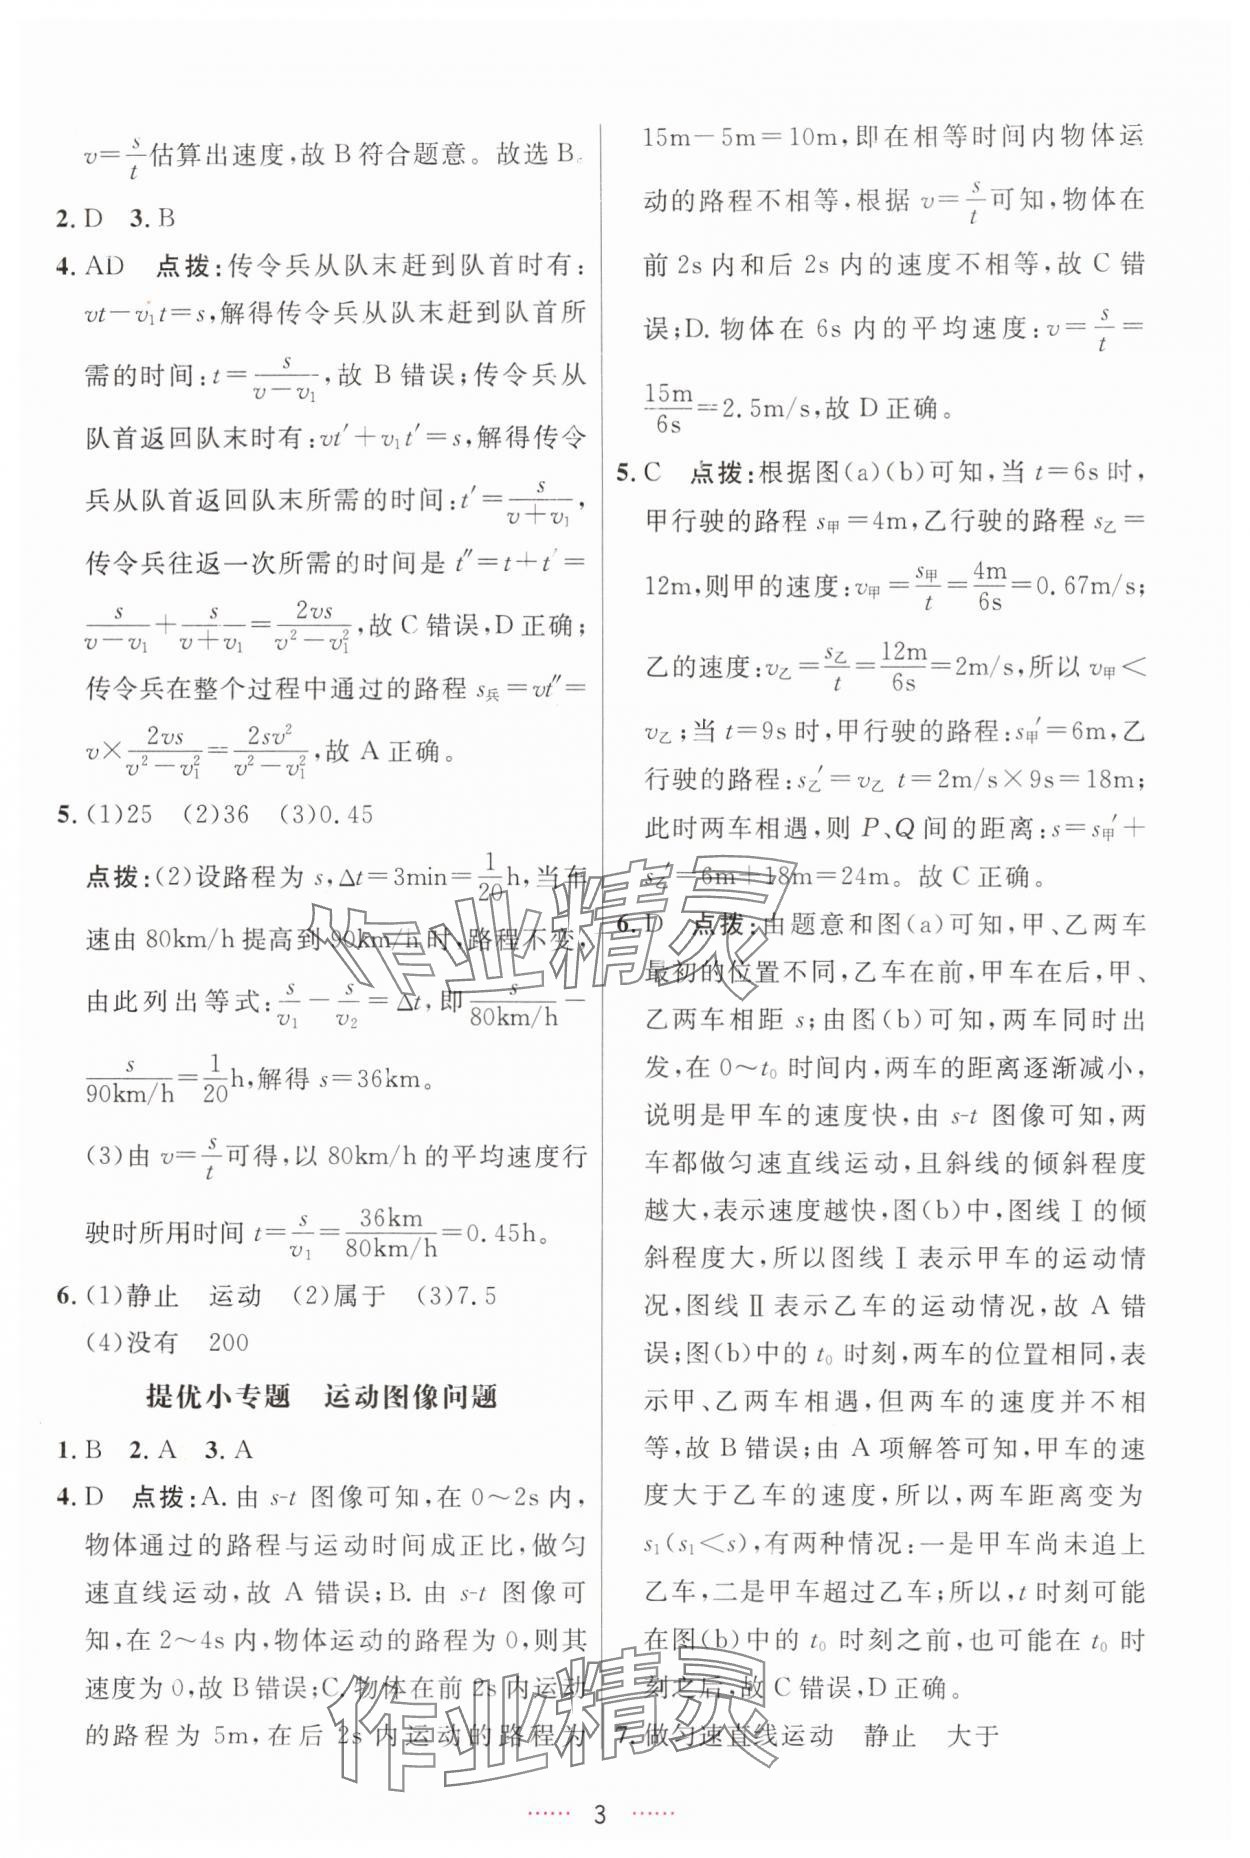 v=s/t 估算出速度,故 B 符合题意。故选 B。
2. D 3. B
4. AD 点拨:传令兵从队末赶到队首时有:
vt-v₁t=s,解得传令兵从队末赶到队首所
需的时间:t=s/(v-v₁),故 B 错误;传令兵从
队首返回队末时有:vt′+v₁t′=s,解得传令
兵从队首返回队末所需的时间:t′=s/(v+v₁),
传令兵往返一次所需的时间是 t″=t+t′=
s/(v-v₁)+s/(v+v₁)=2vs/(v²-v₁²),故 C 错误,D 正确;
传令兵在整个过程中通过的路程 s兵=vt″=
v×2vs/(v²-v₁²)=2sv²/(v²-v₁²),故 A 正确。
5. (1)25 (2)36 (3)0.45
点拨:(2)设路程为 s,Δt=3min=1/20 h,当车
速由 80km/h 提高到 90km/h 时,路程不变,
由此列出等式:s/v₁-s/v₂=Δt,即 s/(80km/h)-
s/(90km/h)=1/20 h,解得 s=36km。
(3)由 v=s/t 可得,以 80km/h 的平均速度行
驶时所用时间 t=s/v₁=36km/(80km/h)=0.45h。
6. (1)静止 运动 (2)属于 (3)7.5
(4)没有 200
提优小专题 运动图像问题
1. B 2. A 3. A
4. D 点拨:A. 由 s-t 图像可知,在 0~2s 内,
物体通过的路程与运动时间成正比,做匀
速直线运动,故 A 错误;B. 由 s-t 图像可
知,在 2~4s 内,物体运动的路程为 0,则其
速度为 0,故 B 错误;C. 物体在前 2s 内运动
的路程为 5m,在后 2s 内运动的路程为
15m-5m=10m,即在相等时间内物体运
动的路程不相等,根据 v=s/t 可知,物体在
前 2s 内和后 2s 内的速度不相等,故 C 错
误;D. 物体在 6s 内的平均速度:v=s/t=
15m/6s=2.5m/s,故 D 正确。
5. C 点拨:根据图(a)(b)可知,当 t=6s 时,
甲行驶的路程 s甲=4m,乙行驶的路程 s乙=
12m,则甲的速度:v甲=s甲/t=4m/6s=0.67m/s;
乙的速度:v乙=s乙/t=12m/6s=2m/s,所以 v甲<
v乙;当 t=9s 时,甲行驶的路程:s甲′=6m,乙
行驶的路程:s乙′=v乙 t=2m/s×9s=18m;
此时两车相遇,则 P、Q 间的距离:s=s甲′+
s乙′=6m+18m=24m。故 C 正确。
6. D 点拨:由题意和图(a)可知,甲、乙两车
最初的位置不同,乙车在前,甲车在后,甲、
乙两车相距 s;由图(b)可知,两车同时出
发,在 0~t₀ 时间内,两车的距离逐渐减小,
说明是甲车的速度快,由 s-t 图像可知,两
车都做匀速直线运动,且斜线的倾斜程度
越大,表示速度越快,图(b)中,图线Ⅰ的倾
斜程度大,所以图线Ⅰ表示甲车的运动情
况,图线Ⅱ表示乙车的运动情况,故 A 错
误;图(b)中的 t₀ 时刻,两车的位置相同,表
示甲、乙两车相遇,但两车的速度并不相
等,故 B 错误;由 A 项解答可知,甲车的速
度大于乙车的速度,所以,两车距离变为
s₁(s₁<s),有两种情况:一是甲车尚未追上
乙车,二是甲车超过乙车;所以,t 时刻可能
在图(b)中的 t₀ 时刻之前,也可能在 t₀ 时
刻之后,故 C 错误,D 正确。
7. 做匀速直线运动 静止 大于
作业精灵
作业精灵
······ 3 ······